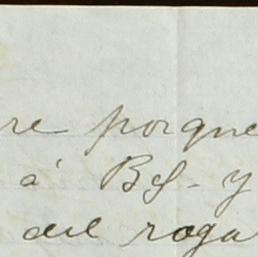 re porque
á Bs - y
del roga